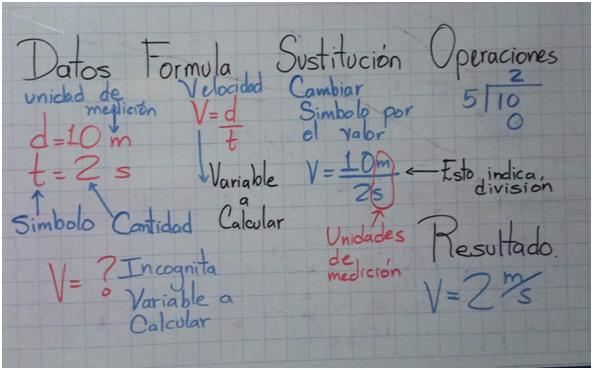 Datos
unidad de
medición
d=10 m
t=2 s
Simbolo Cantidad
V=? Incognita
Variable a
Calcular
Formula
Velocidad
V=d/t
Variable
a
Calcular
Sustitución
Cambiar
Simbolo por
el valor
V=10m/2s
Esto indica
division
Unidades
de
medición
Operaciones
2
5 10
0
Resultado.
V=2 m/s